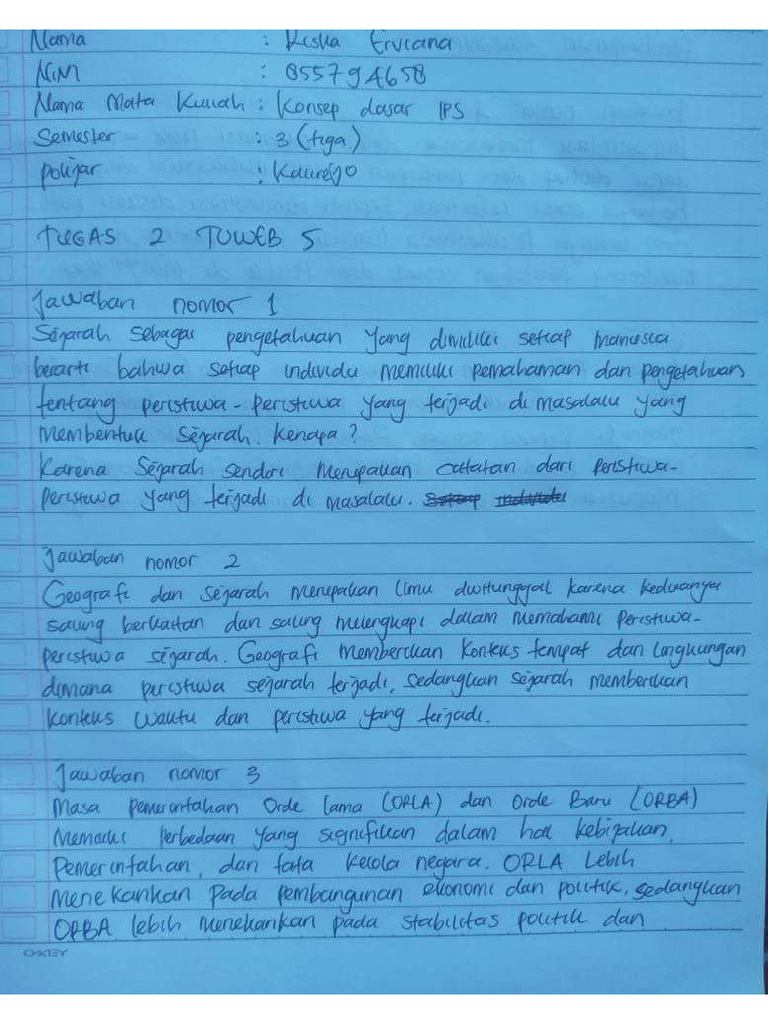 Nama : Riska Erviana
NIM : 855794658
Nama Mata Kuliah : Konsep dasar IPS
Semester : 3 (tiga)
pokjar : Kaurejo
TUGAS 2 TUWEB 5
Jawaban nomor 1
Sejarah sebagai pengetahuan yang dimiliki setiap manusia
berarti bahwa setiap individu memiliki pemahaman dan pengetahuan
tentang peristiwa-peristiwa yang terjadi di masalalu yang
membentuk sejarah. Kenapa?
Karena Sejarah sendiri merupakan catatan dari peristiwa-
peristiwa yang terjadi di masalalu. Setiap individu
Jawaban nomor 2
Geografi dan sejarah merupakan ilmu dwitunggal karena keduanya
saling berkaitan dan saling melengkapi dalam memahami peristiwa-
peristiwa sejarah. Geografi memberikan konteks tempat dan lingkungan
dimana peristiwa sejarah terjadi, sedangkan sejarah memberikan
konteks waktu dan peristiwa yang terjadi.
Jawaban nomor 3
Masa pemerintahan Orde Lama (ORLA) dan Orde Baru (ORBA)
Memiliki perbedaan yang signifikan dalam hal kebijakan,
pemerintahan, dan tata kelola negara. ORLA Lebih
menekankan pada pembangunan ekonomi dan politik, sedangkan
ORBA lebih menekankan pada stabilitas politik dan
OKEY